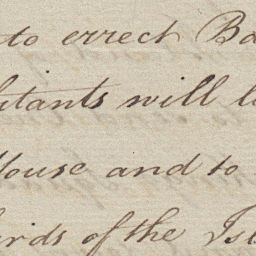 to errect Ba
itants will l
House and to
irds of the Isl